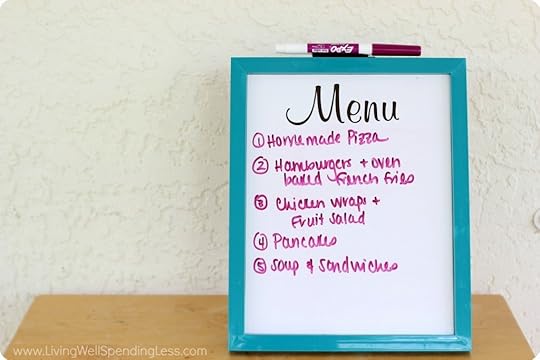 EXPO
Menu
① Homemade Pizza
② Hamburgers + oven
baked French fries
③ Chicken wraps +
Fruit Salad
④ Pancakes
⑤ Soup & Sandwiches
www.LivingWellSpendingLess.com